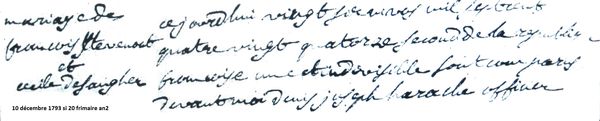 mariage de
francois thevenot
et
cecile desanglier
cejourdhui vingt six nivos mil sept cent
quatre vingt quatorze second de la republi
francoise une et indivisible sont comparus
devant moi denis joseph harache officier
10 décembre 1793 si 20 frimaire an2